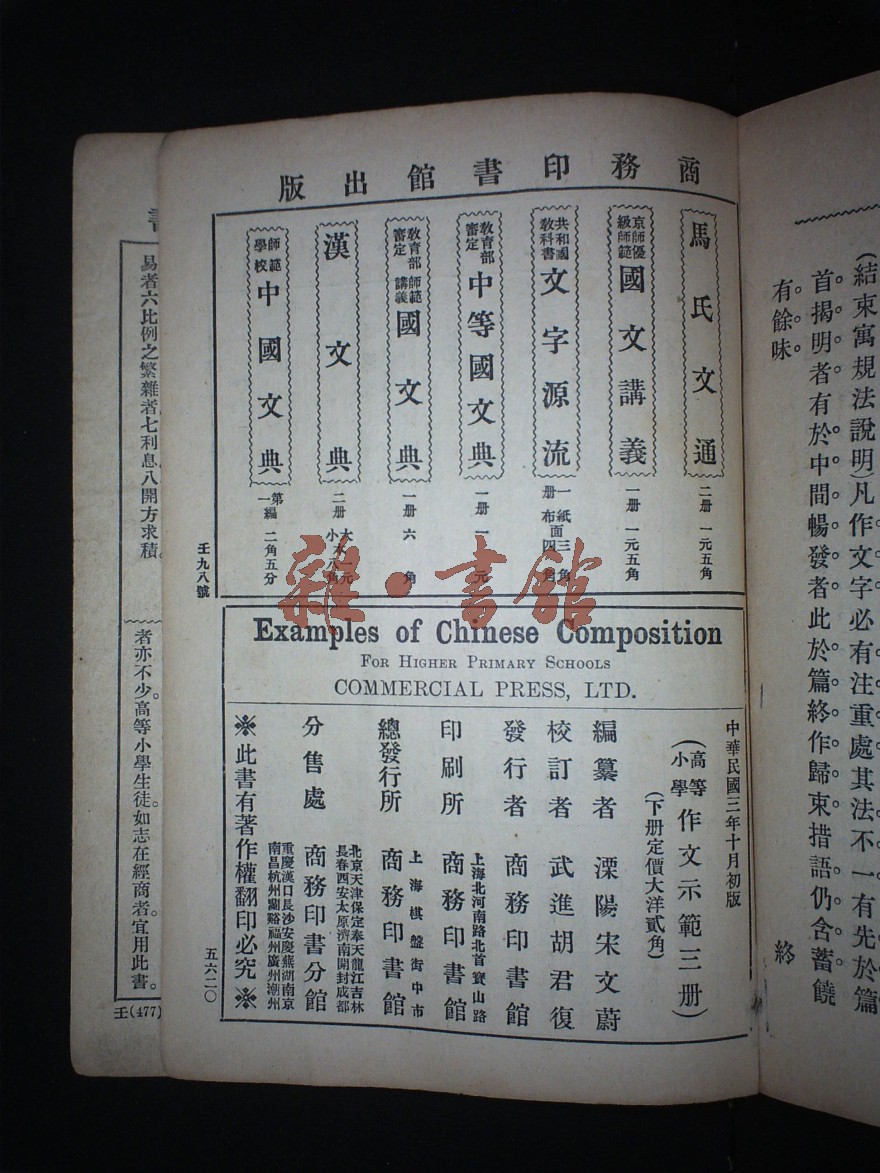 (結束寓規法說明)凡作文字必有注重處。其法不一。有先於篇
首揭明者。有於中間暢發者。此於篇終作歸束。措語仍含蓄饒
有餘味。
終
商務印書館出版
馬氏文通 二册 一元五角
京師優級師範 國文講義 一册 一元五角
共和國教科書 文字源流 一册 紙面三角 布面四角
教育部審定 中等國文典 一册 一元
教育部審定 師範講義 國文典 一册 六角
漢文典 二册 大本一元 小本六角
師範學校 中國文典 第一編 二角五分
壬九八號
雜·書館
Examples of Chinese Composition
For Higher Primary Schools
COMMERCIAL PRESS, LTD.
中華民國三年十月初版
(高等小學)作文示範三册)
(下册定價大洋貳角)
編纂者 溧陽宋文蔚
校訂者 武進胡君復
發行者 商務印書館
上海北河南路北首寶山路
印刷所 商務印書館
上海棋盤街中市
總發行所 商務印書館
北京天津保定奉天龍江吉林
長春西安太原濟南開封成都
分售處 商務印書分館
重慶漢口長沙安慶蕪湖南京
南昌杭州蘭谿福州廣州潮州
※此書有著作權翻印必究※
五六二〇
易者六比例之繁雜者七利息八開方求積。
者亦不少。高等小學生徒如志在經商者宜用此書。
壬(477)